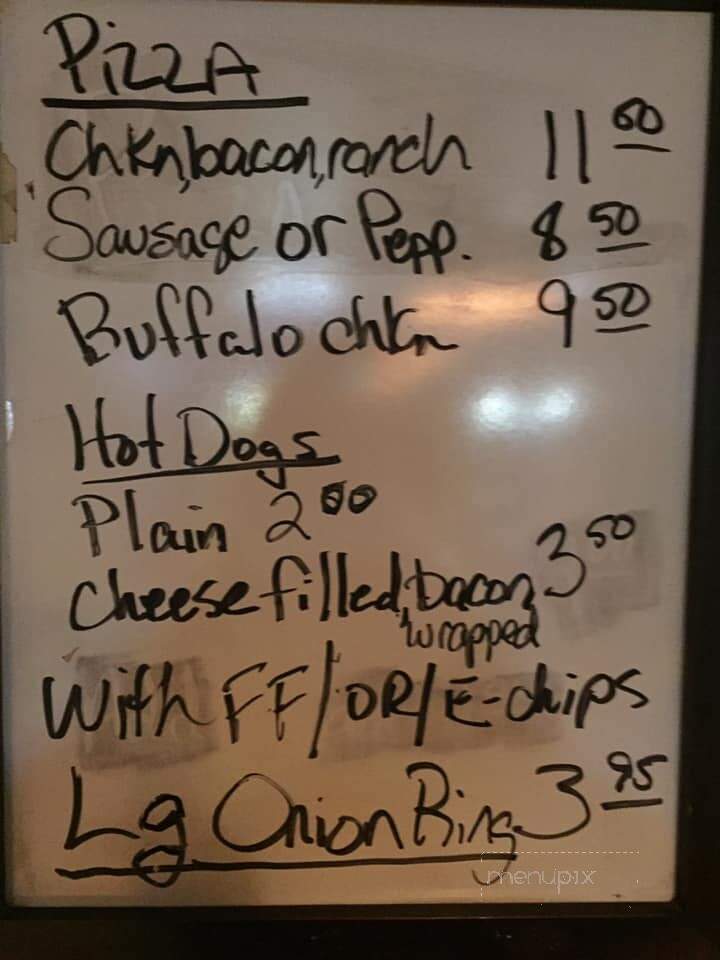 PizzA
Chkn,bacon,ranch 11 50
Sausage or Pepp. 8 50
Buffalo chkn 9 50
Hot Dogs
Plain 2 00
Cheese filled, bacon 3 50
wrapped
With FF/OR/E-chips
Lg Onion Ring 3 95
menupix